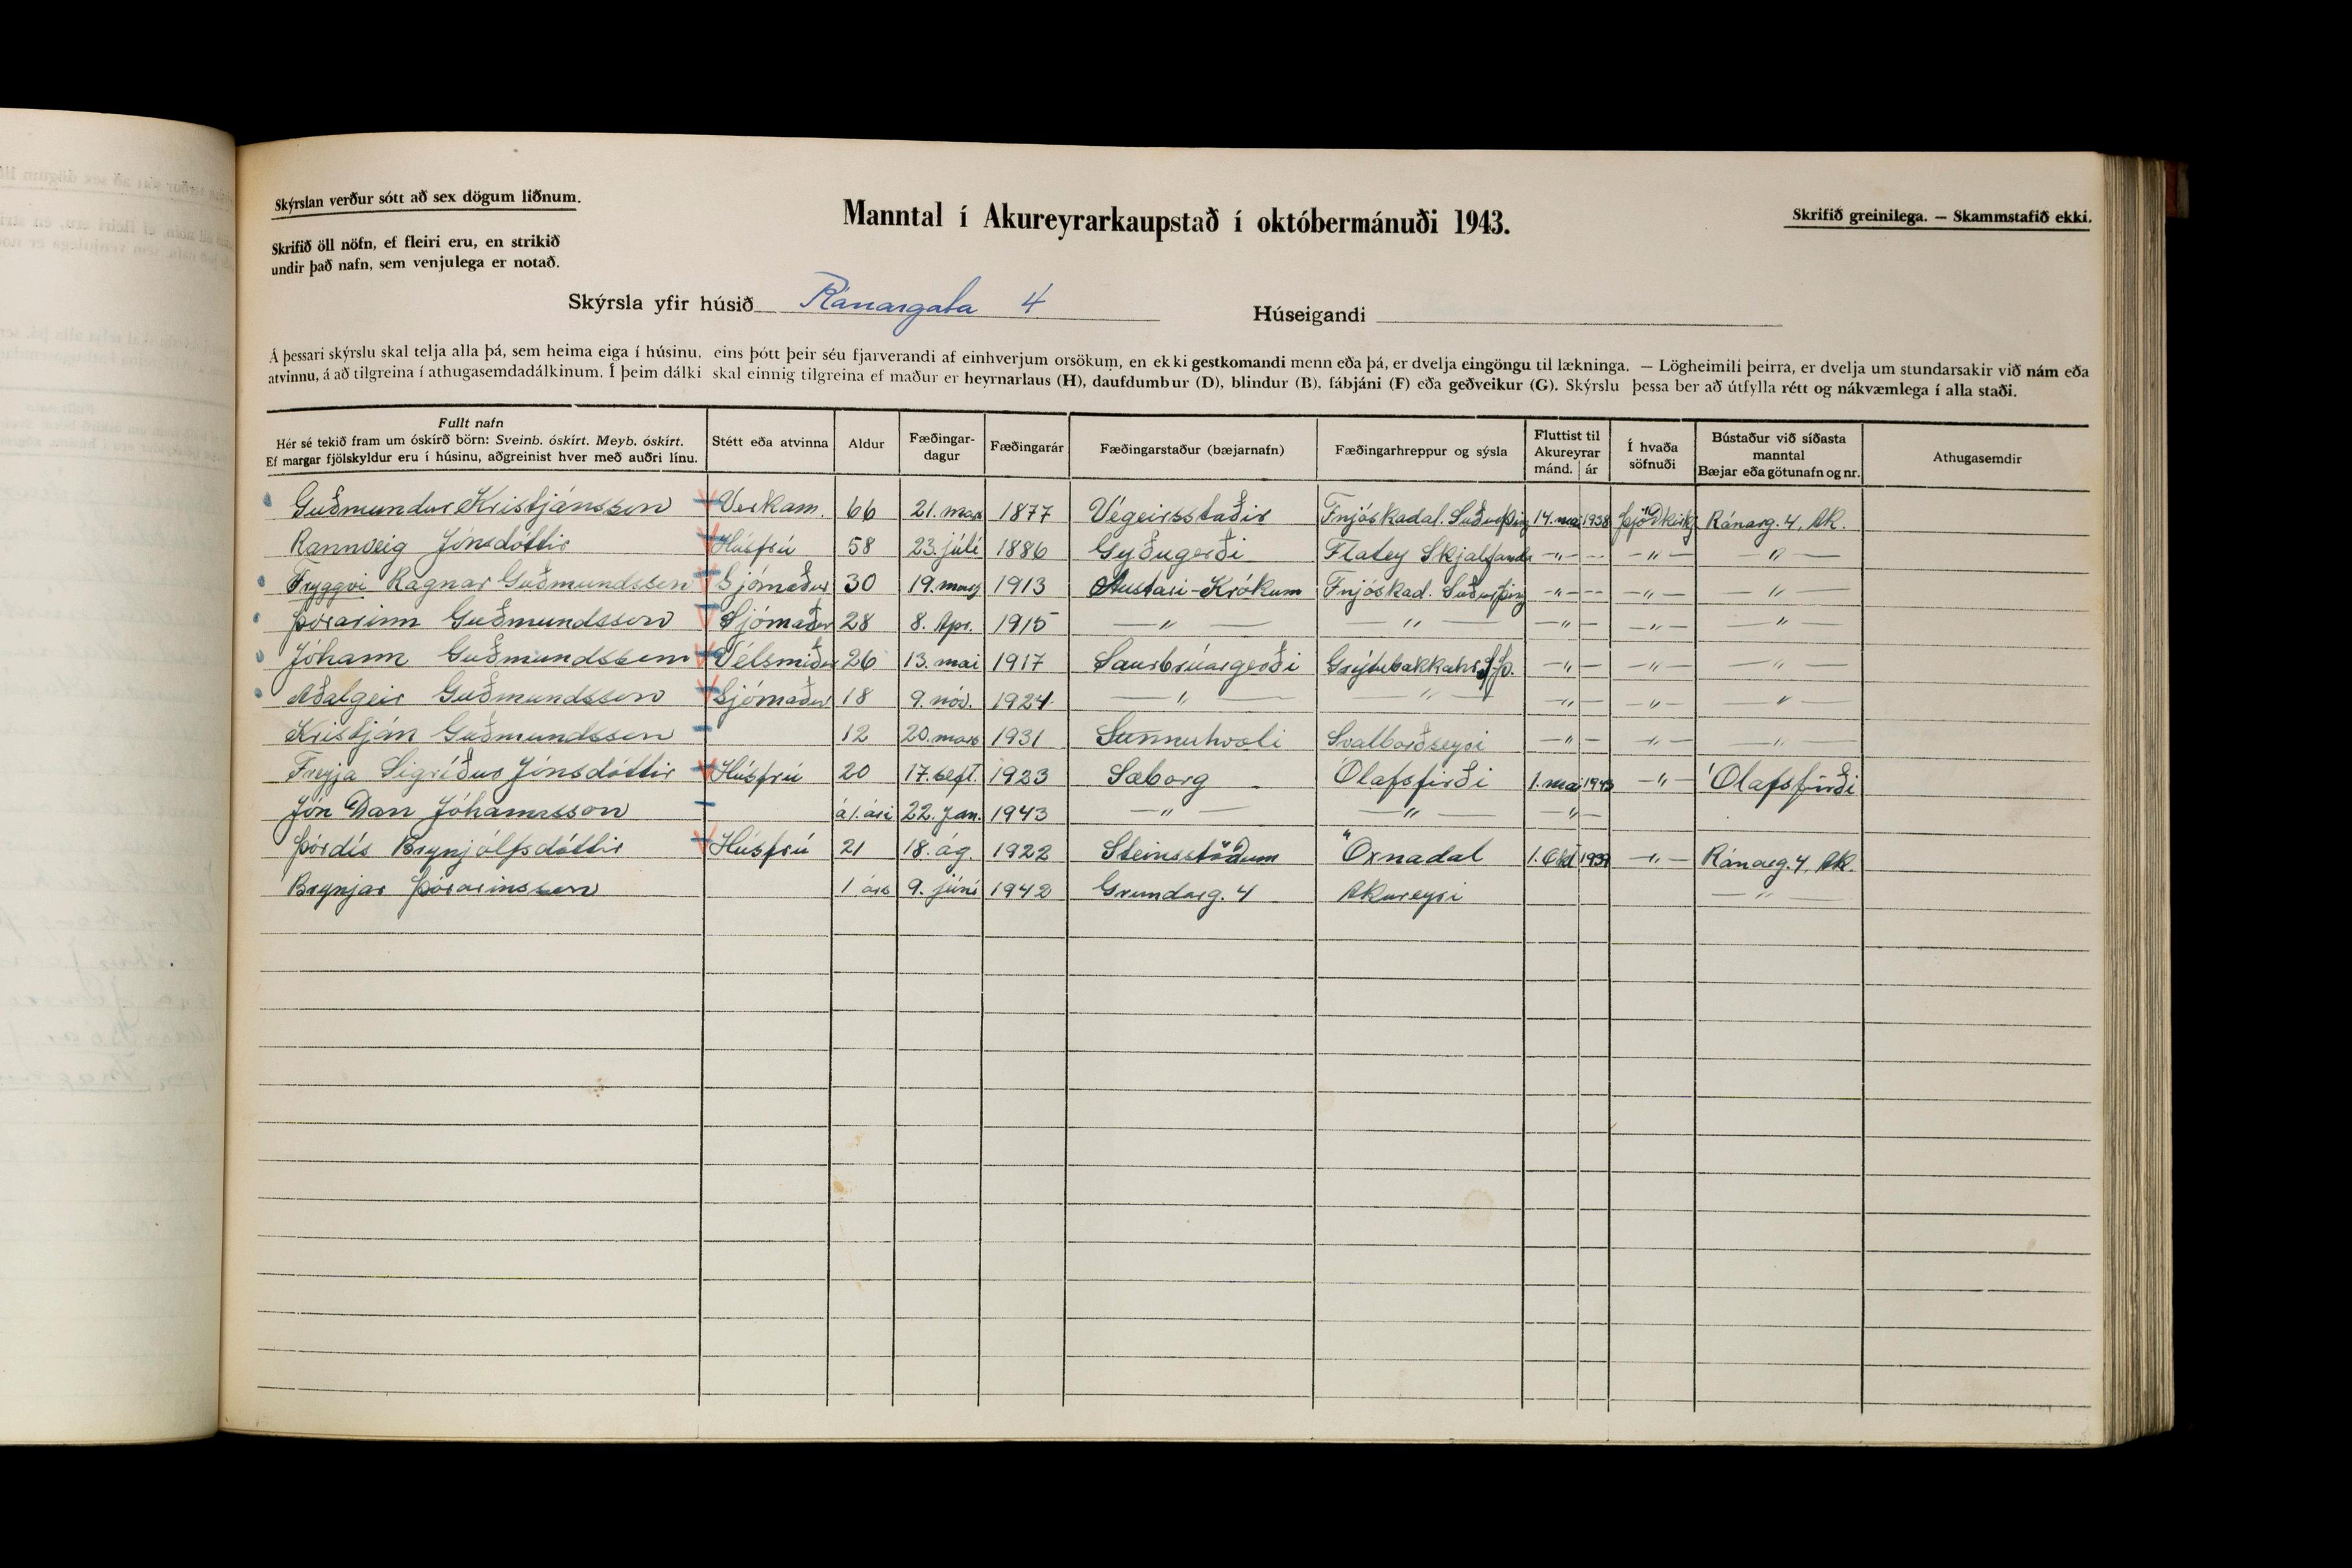 Skýrslan verður sótt að sex dögum liðnum.
Manntal í Akureyrarkaupstað í októbermánuði 1943.
Skrifið greinilega. — Skammstafið ekki.
Skrifið öll nöfn, ef fleiri eru, en strikið
undir það nafn, sem venjulega er notað.
Skýrsla yfir húsið Ránargata 4 Húseigandi
Á þessari skýrslu skal telja alla þá, sem heima eiga í húsinu, eins þótt þeir séu fjarverandi af einhverjum orsökum, en ekki gestkomandi menn eða þá, er dvelja eingöngu til lækninga. — Lögheimili þeirra, er dvelja um stundarsakir við nám eða
atvinnu, á að tilgreina í athugasemdadálkinum. Í þeim dálki skal einnig tilgreina ef maður er heyrnarlaus (H), daufdumbur (D), blindur (B), fábjáni (F) eða geðveikur (G). Skýrslu þessa ber að útfylla rétt og nákvæmlega í alla staði.
Fullt nafn
Hér sé tekið fram um óskírð börn: Sveinb. óskírt. Meyb. óskírt.
Ef margar fjölskyldur eru í húsinu, aðgreinist hver með auðri línu.
Stétt eða atvinna
Aldur
Fæðingar-
dagur
Fæðingarár
Fæðingarstaður (bæjarnafn)
Fæðingarhreppur og sýsla
Fluttist til
Akureyrar
mánd. ár
Í hvaða
söfnuði
Bústaður við síðasta
manntal
Bæjar eða götunafn og nr.
Athugasemdir
Guðmundur Kristjánsson Verkam. 66 21. mars 1877 Végeirsstaðir Fnjóskadal. Suðurþing 14. mai 1938 Þjóðkirkj Ránarg. 4, Ak.
Rannveig Jónsdóttir Húsfrú 58 23. júlí 1886 Gyðugerði Flatey Skjalfanda —"— -- —"— —"—
Tryggvi Ragnar Guðmundsson Sjómaður 30 19. mars 1913 Austari-Krókum Fnjóskad. Suðurþing —"— -- —"— —"—
Þórarinn Guðmundsson Sjómaður 28 8. Apr. 1915 —"— —"— —"— —"— —"—
Jóhann Guðmundsson Vélsmiður 26 13. mai 1917 Saurbrúargerði Grýtubakkahr. S.Þ. —"— —"— —"—
Aðalgeir Guðmundsson Sjómaður 18 9. nóv. 1924 —"— —"— —"— —"— —"—
Kristján Guðmundsson 12 20. mars 1931 Sunnuhvoli Svalbarðseyri —"— —"— —"—
Freyja Sigríður Jónsdóttir Húsfrú 20 17. sept. 1923 Sæborg Ólafsfirði 1. mai 1943 —"— Ólafsfirði
Jón Dan Jóhannsson á 1. ári 22. Jan. 1943 —"— —"— —"—
Þórdís Brynjólfsdóttir Húsfrú 21 18. ág. 1922 Steinsstöðum Öxnadal 1. Okt 1939 —"— Ránarg. 4, Ak.
Brynjar Þórarinsson 1 árs 9. júní 1942 Grundarg. 4 Akureyri —"—